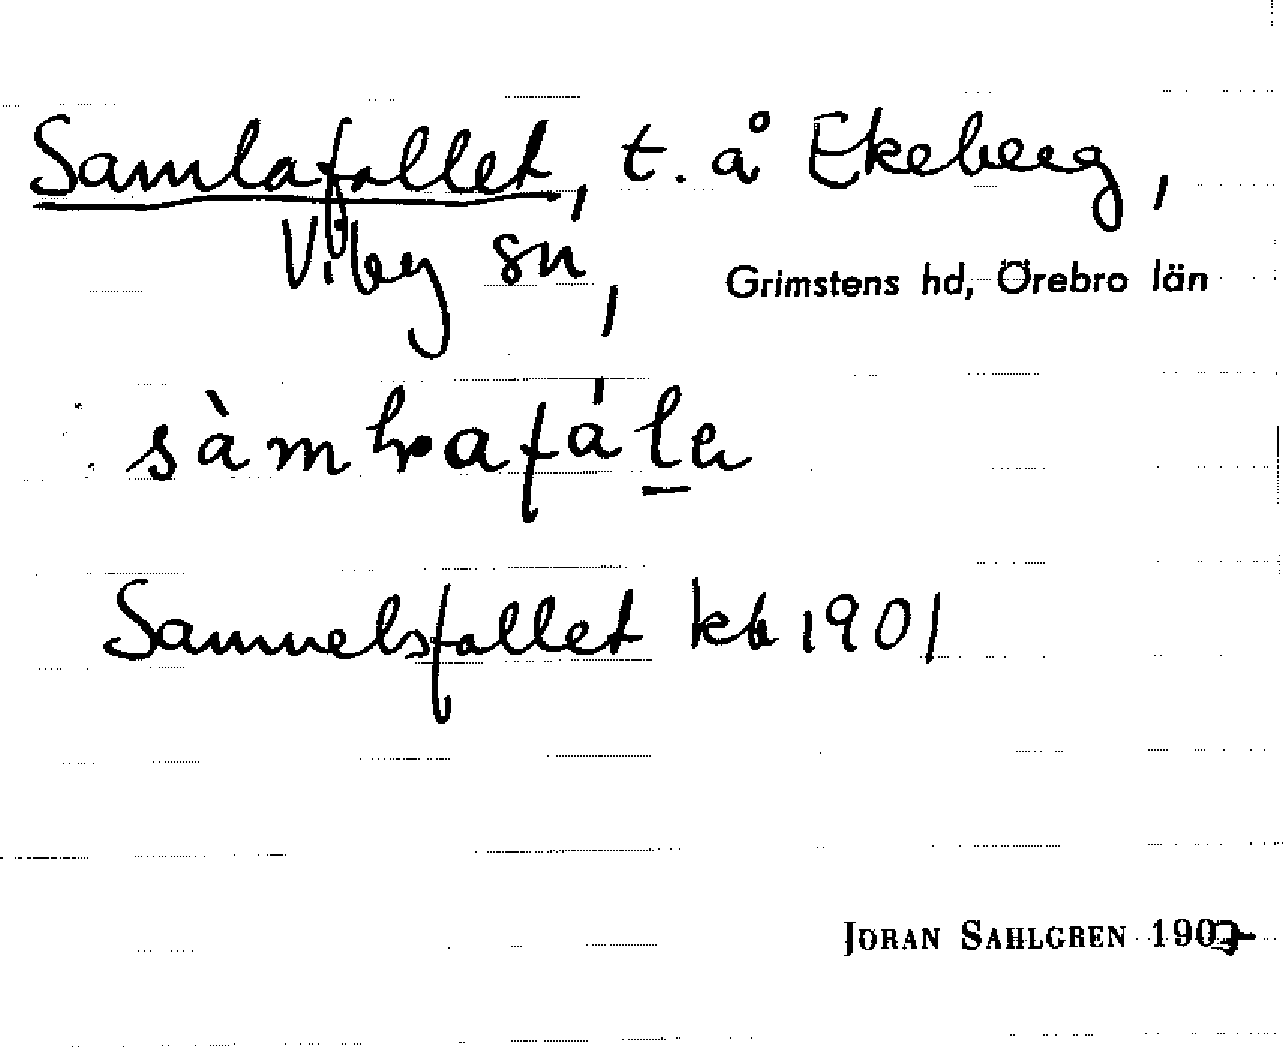 Samlafallet, t. å Ekeberg,
Viby sn,
Grimstens hd, Örebro län
Samuelsfallet kb 1901
JÖRAN SAHLGREN